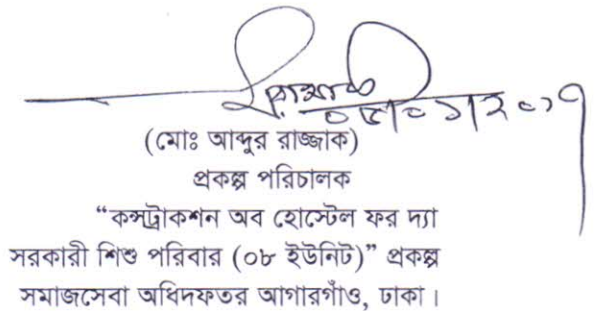 (মোঃ আব্দুর রাজ্জাক)
প্রকল্প পরিচালক
“কন্সট্রাকশন অব হোস্টেল ফর দ্যা
সরকারী শিশু পরিবার (০৮ ইউনিট)” প্রকল্প
সমাজসেবা অধিদফতর আগারগাঁও, ঢাকা।